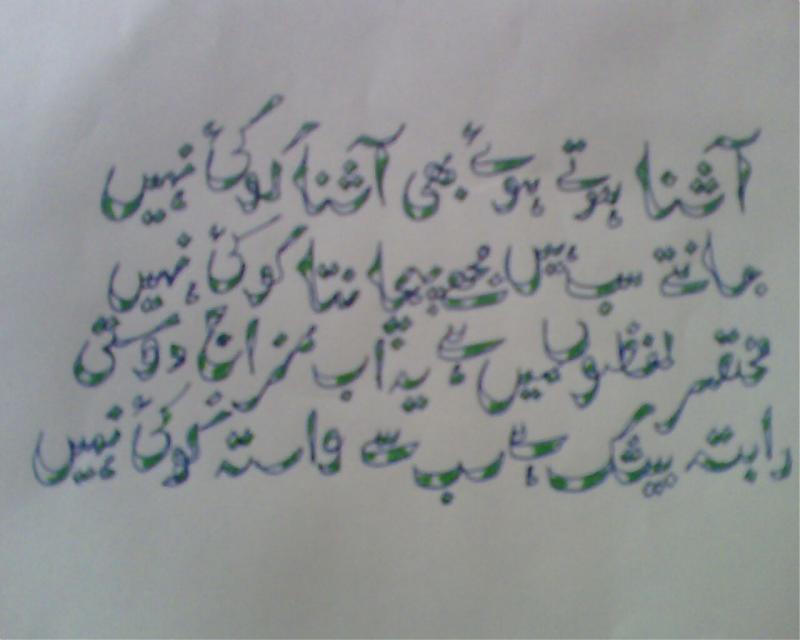 آشنا ہوتے ہوئے بھی آشنا کوئی نہیں
جانتے سب ہیں مجھے پہچانتا کوئی نہیں
مختصر لفظوں میں ہے یہ اب مزاج دوستی
رابتہ بیشک ہے سب سے واستہ کوئی نہیں